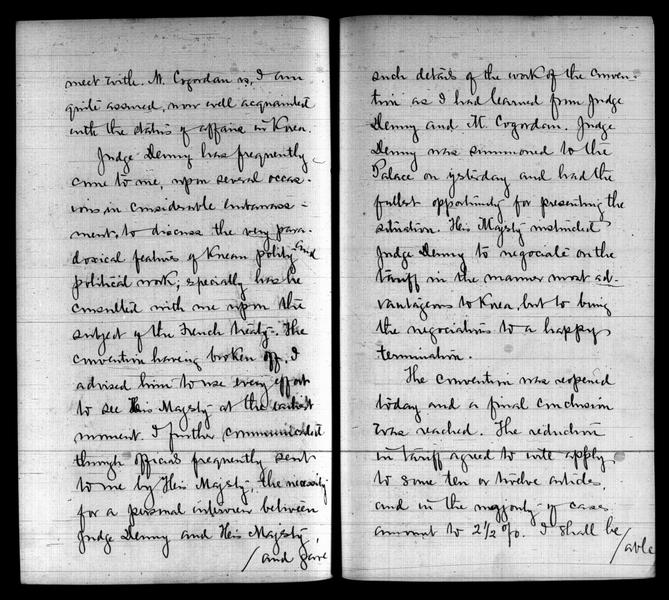 meet with. M. Cogordan is, I am
quite assured, now well acquainted
with the status of affairs in Korea.
Judge Denny has frequently
come to me, upon several occas-
ions in considerable embarrass-
ment, to discuss the very para-
doxical features of Korean polity and
political work; specially has he
consulted with me upon the
subject of the French treaty. The
convention having broken off, I
advised him to use every effort
to see His Majesty at the earliest
moment. I further communicated
through officials frequently sent
to me by His Majesty, the necessity
for a personal interview between
Judge Denny and His Majesty,
/and gave
such details of the work of the conven-
tion as I had learned from Judge
Denny and M. Cogordan. Judge
Denny was summoned to the
Palace on yesterday and had the
fullest opportunity for presenting the
situation. His Majesty instructed
Judge Denny to negociate on the
tariff in the manner most ad-
vantageous to Korea, but to bring
the negociations to a happy
termination.
The convention was reopened
today and a final conclusion
was reached. The reduction
in tariff agreed to will apply
to some ten or twelve articles,
and in the majority of cases
amount to 2½ %. I shall be
/able